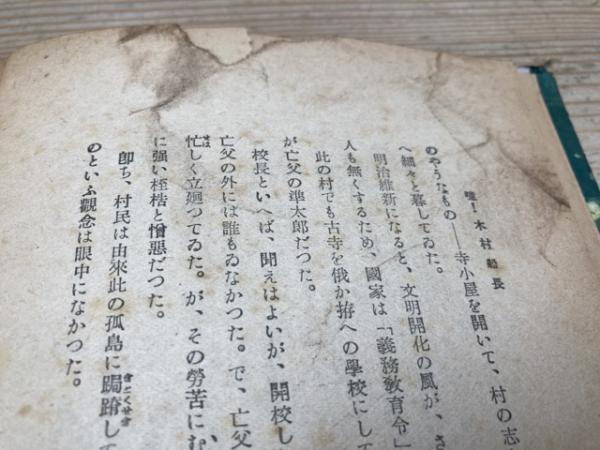 噫！木村船長
のやうなもの――寺小屋を開いて、村の志
へ細々と暮してゐた。
明治維新になると、文明開化の風が、さ
人も無くするため、國家は「義務敎育令」
此の村でも古寺を俄か拵への學校にして
が亡父の準太郎だつた。
校長といへば、聞えはよいが、開校し
亡父の外には誰もゐなかつた。で、亡父
忙しく立廻つてゐた。が、その勞苦にむ
に强い桎梏と憎惡だつた。
卽ち、村民は由來此の孤島に跼蹐して
のといふ觀念は眼中になかつた。